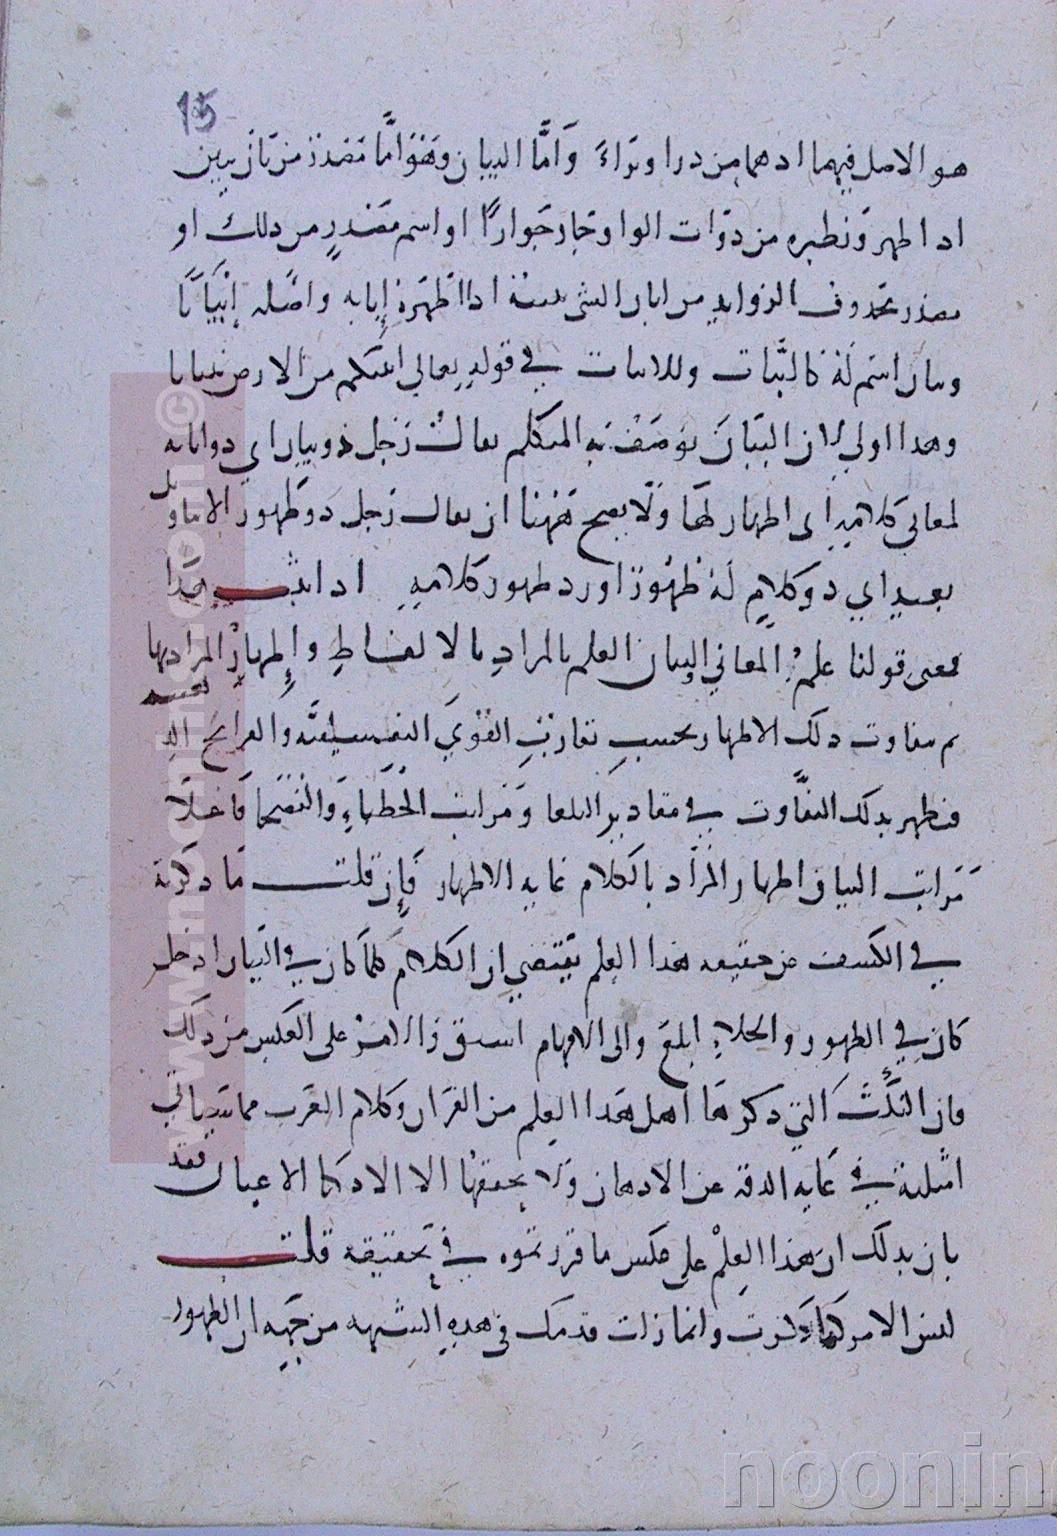 15
هو الاصل فيهما اذ هما من درا وتراء واما البيان وهو اما مصدر من بان يبين
اذا ظهر ونظيره من ذوات الواو جار جوارا او اسم مصدر من ذلك او
مصدر محذوف الزوايد من ابان الشي يبينه اذا اظهره إبانه واصله إبيانا
وبيان اسم له كالنبات وللانبات في قوله تعالى انبتكم من الارض نباتا
وهذا اولى لان البيان يوصف به المتكلم يقال رجل ذو بيان اي ذو ابانه
لمعاني كلامه اي اظهار لها ولا يصح ههنا ان يقال رجل ذو ظهور الا بتاويل
بعيد اي ذو كلام له ظهور او ذو ظهور كلامه اذا ثبت هذا
فمعنى قولنا علم المعاني والبيان العلم بالمراد بالالفاظ وإظهار المراد بها
ثم يتفاوت ذلك الاظهار بحسب تفاوت القوى النفسيه والقرايح
فيظهر بذلك التفاوت في مقادير البلغا ومراتب الخطباء والفصحا فاعلا
مراتب البيان اظهار المراد بالكلام غايه الاظهار فإن قلت ما ذكرته
في الكشف عن حقيقه هذا العلم يقتضي ان الكلام كلما كان في البيان ادخل
كان في الظهور والجلاء ابلغ والى الافهام اسبق والامر على العكس من ذلك
فان النكت التي ذكرها اهل هذا العلم من القران وكلام العرب مما سياتي
امثلته في غايه الدقه عن الاذهان ولا يحققها الا الاذكيا الاعيان فقد
بان بذلك ان هذا العلم على عكس ما قررتموه في تحقيقه قلت
ليس الامر كما ذكرت وانما زلت قدمك في هذه الشبهه من جهه ان الظهور
www.noonino.com ©
noonin